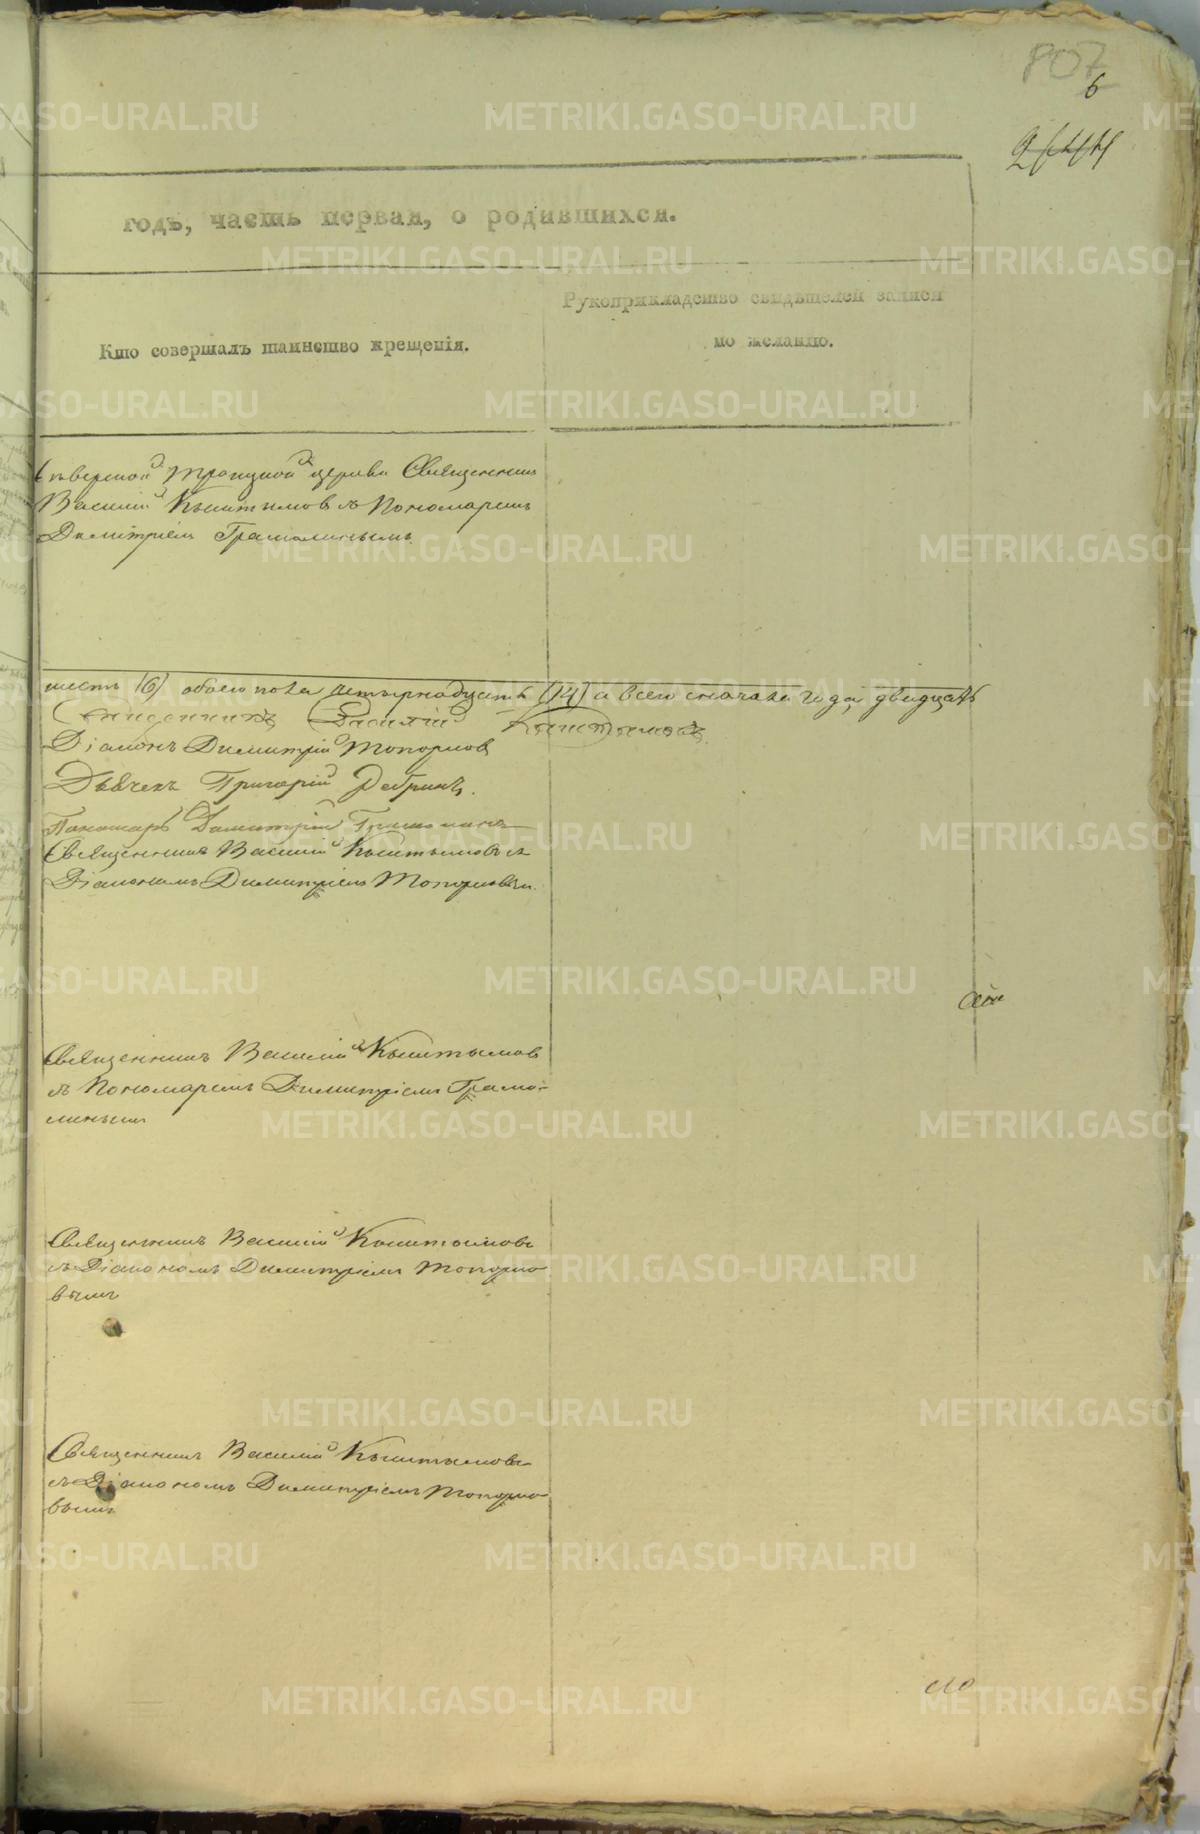 807
6
244
годъ, часть первая, о родившихся.
Кто совершалъ таинство крещенія.
Рукоприкладство свидѣтелей записи
по желанію.
Сѣверной Троицкой церкви Священникъ
Василій Кыштымов съ Пономаремъ
Димитріемъ Грамолинымъ
шесть (6) обоего пола четырнадцать (14) а всего сначала года двадцать
Священникъ Василій Кыштымовъ
Діаконъ Димитрій Топорков
Дьячекъ Григорій Ребринъ.
Пономарь Димитрій Грамолинъ
Священникъ Василій Кыштымовъ съ
Діакономъ Димитріемъ Топорковым.
Священникъ Василій Кыштымов
съ Пономаремъ Димитріемъ Грамо-
линымъ
Священникъ Василій Кыштымовъ
съ Діакономъ Димитріемъ Топорко-
вымъ
Священникъ Василій Кыштымовъ
съ Діакономъ Димитріемъ Топорко-
вымъ
METRIKI.GASO-URAL.RU